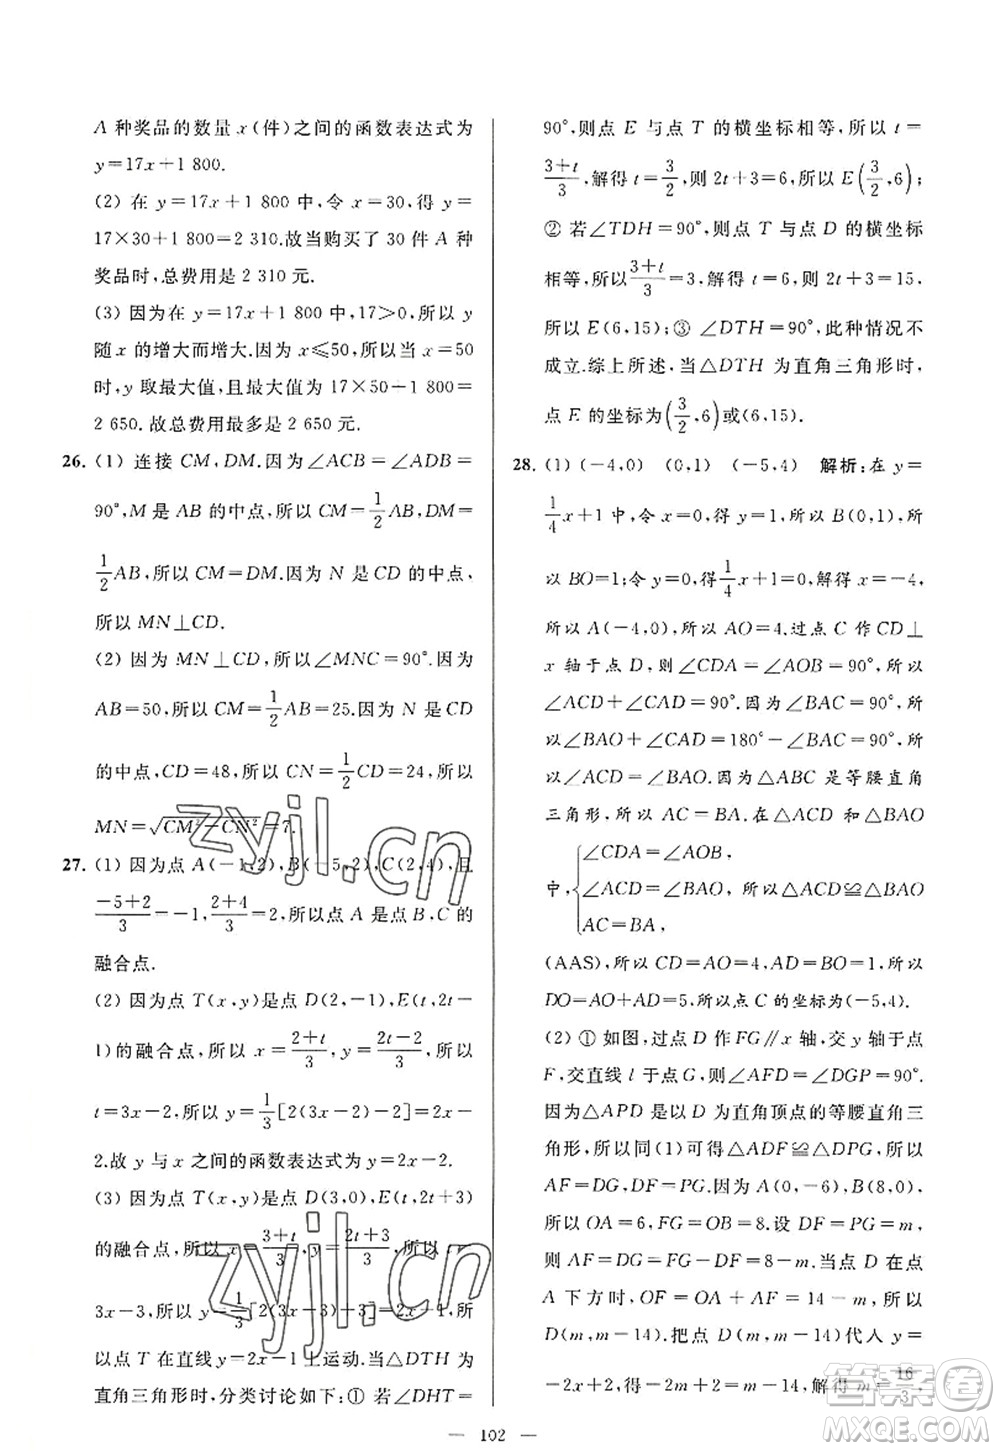 A 种奖品的数量 x(件)之间的函数表达式为
y=17x+1 800.
(2) 在 y=17x+1 800 中，令 x=30，得 y=
17×30+1 800=2 310.故当购买了 30 件 A 种
奖品时，总费用是 2 310 元.
(3) 因为在 y=17x+1 800 中，17>0，所以 y
随 x 的增大而增大.因为 x≤50，所以当 x=50
时，y 取最大值，且最大值为 17×50+1 800=
2 650.故总费用最多是 2 650 元.
26. (1) 连接 CM，DM.因为∠ACB=∠ADB=
90°，M 是 AB 的中点，所以 CM=1/2AB，DM=
1/2AB，所以 CM=DM.因为 N 是 CD 的中点，
所以 MN⊥CD.
(2) 因为 MN⊥CD，所以∠MNC=90°.因为
AB=50，所以 CM=1/2AB=25.因为 N 是 CD
的中点，CD=48，所以 CN=1/2CD=24，所以
MN=√(CM²−CN²)=7.
27. (1) 因为点 A(−1,2)，B(−5,2)，C(2,4)，且
(−5+2)/3=−1，(2+4)/3=2，所以点 A 是点 B、C 的
融合点.
(2) 因为点 T(x,y)是点 D(2,−1)，E(t,2t−
1)的融合点，所以 x=(2+t)/3，y=(2t−2)/3，所以
t=3x−2，所以 y=1/3[2(3x−2)−2]=2x−
2.故 y 与 x 之间的函数表达式为 y=2x−2.
(3) 因为点 T(x,y)是点 D(3,0)，E(t,2t+3)
的融合点，所以 x=(3+t)/3，y=(2t+3)/3，所以 t=
3x−3，所以 y=1/3[2(3x−3)+3]=2x−1，所
以点 T 在直线 y=2x−1 上运动.当△DTH 为
直角三角形时，分类讨论如下：① 若∠DHT=
90°，则点 E 与点 T 的横坐标相等，所以 t=
(3+t)/3，解得 t=3/2，所以 2t+3=6，所以 E(3/2,6)；
② 若∠TDH=90°，则点 T 与点 D 的横坐标
相等，所以(3+t)/3=3，解得 t=6，则 2t+3=15，
所以 E(6,15)；③ ∠DTH=90°，此种情况不
成立.综上所述，当△DTH 为直角三角形时，
点 E 的坐标为(3/2,6)或(6,15).
28. (1) (−4,0) (0,1) (−5,4) 解析：在 y=
1/4x+1 中，令 x=0，得 y=1，所以 B(0,1)，所
以 BO=1；令 y=0，得1/4x+1=0，解得 x=−4，
所以 A(−4,0)，所以 AO=4.过点 C 作 CD⊥
x 轴于点 D，则∠CDA=∠AOB=90°，所以
∠ACD+∠CAD=90°.因为∠BAC=90°，所
以∠BAO+∠CAD=180°−∠BAC=90°，所
以∠ACD=∠BAO.因为△ABC 是等腰直角
三角形，所以 AC=BA.在△ACD 和△BAO
中，{∠CDA=∠AOB，
∠ACD=∠BAO，所以△ACD≌△BAO
AC=BA，
(AAS)，所以 CD=AO=4，AD=BO=1，所以
DO=AO+AD=5，所以点 C 的坐标为(−5,4).
(2) ① 如图，过点 D 作 FG∥x 轴，交 y 轴于点
F，交直线 l 于点 G，则∠AFD=∠DGP=90°.
因为△APD 是以 D 为直角顶点的等腰直角三
角形，所以同(1)可得△ADF≌△DPG，所以
AF=DG，DF=PG.因为 A(0,−6)，B(8,0)，
所以 OA=6，FG=OB=8.设 DF=PG=m，
则 AF=DG=FG−DF=8−m.当点 D 在点
A 下方时，OF=OA+AF=14−m，所以
D(m,m−14).把点 D(m,m−14)代入 y=
−2x+2，得−2m+2=m−14，解得 m=16/3，
— 102 —
zyjl.cn
zyjl.cn
答案圈
MXQE.COM